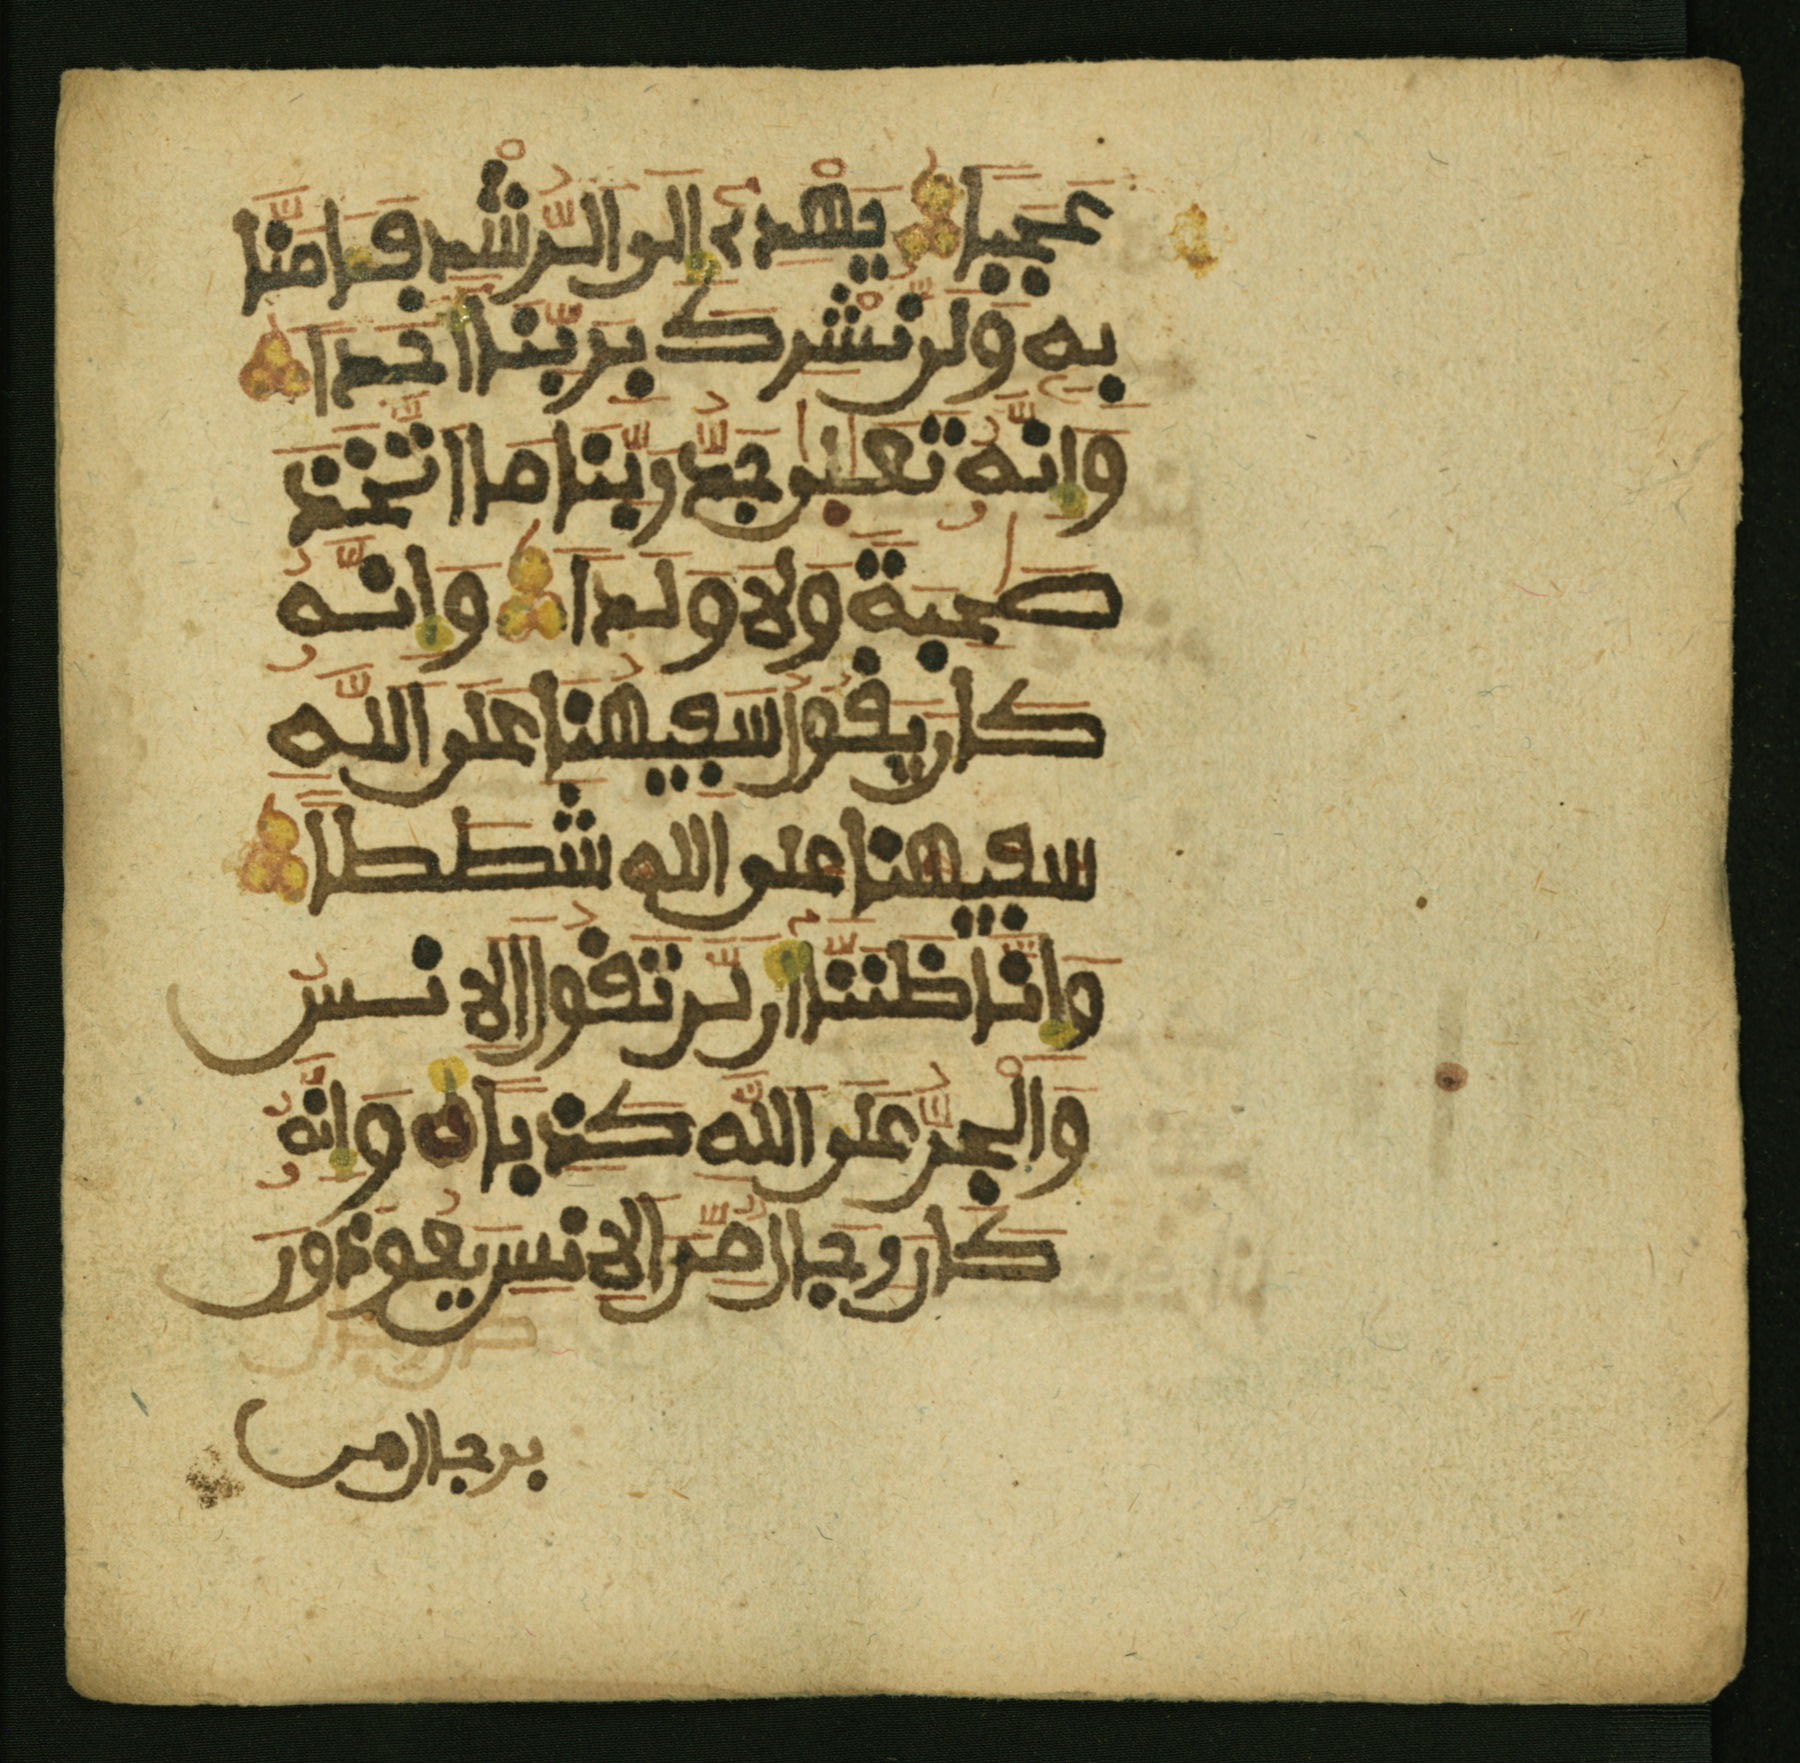 عَجَبًا يَهْدِےٓ إِلَى الرُّشْدِ فَـَٔامَنَّا
بِهِۦ وَلَن نُّشْرِكَ بِرَبِّنَا أَحَدًا
وَإِنَّهُۥ تَعَٰلَىٰ جَدُّ رَبِّنَا مَا اتَّخَذَ
صَٰحِبَةً وَلَا وَلَدًا وَإِنَّهُۥ
كَانَ يَقُولُ سَفِيهُنَا عَلَى اللَّهِ
سفيهنا على الله شَطَطًا
وَإِنَّا ظَنَنَّا أَن لَّن تَقُولَ الْإِنسُ
وَالْجِنُّ عَلَى اللَّهِ كَذِبًا وَإِنَّهُۥ
كَانَ رِجَالٌ مِّنَ الْإِنسِ يَعُوذُونَ
برجال من